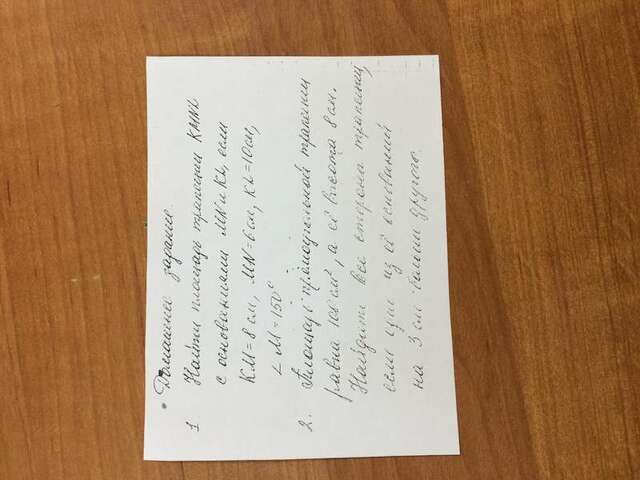 Домашнее задание.
1 Найти площадь трапеции KMNL
с основаниями MN и KL, если
KM = 8 см, MN = 6 см, KL = 10 см,
∠M = 150°
2. Площадь прямоугольной трапеции
равна см², а её высота 8 см.
Найдите все стороны трапеции,
если одно из её оснований
на 3 см больше другого.